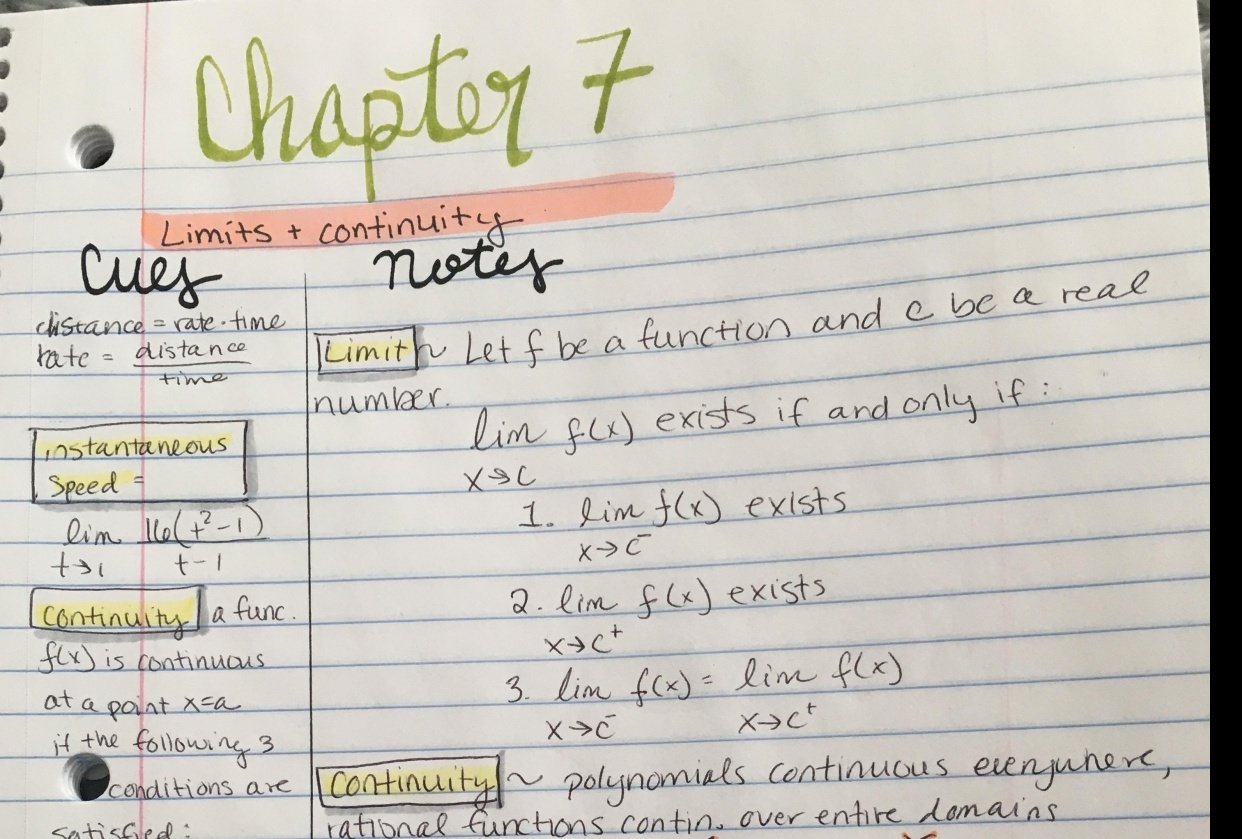 Chapter 7
Limits + continuity
Cues
distance = rate · time
rate = distance
time
instantaneous
Speed =
lim 16(t²-1)
t→1 t-1
Continuity a func.
f(x) is continuous
at a point x=a
if the following 3
conditions are
satisfied:
Notes
Limit ~ Let f be a function and c be a real
number.
lim f(x) exists if and only if :
x→c
1. lim f(x) exists
x→c⁻
2. lim f(x) exists
x→c⁺
3. lim f(x) = lim f(x)
x→c⁻ x→c⁺
Continuity ~ polynomials continuous everywhere,
rational functions contin. over entire domains